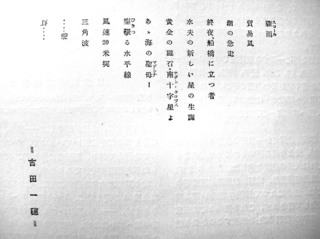 驟雨
貿易風
潮の急走
終夜、船橋に立つ者
水夫の新しい星の生誕
黄金の 石・南十字星よ
あゝ海の聖母!
る水平線
風速20米突
三角波
吉田一穂